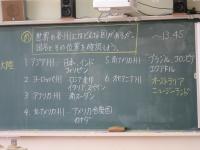 世界の各州にはどんな国があるか。
国名とその位置を確認しよう。
～13:45
大陸
1. アジア州 日本、インド
フィリピン
2. ヨーロッパ州 ロシア連邦
イタリア、スペイン
3. アフリカ州 南スーダン
4. 北アメリカ州 アメリカ合衆国
カナダ
5. 南アメリカ州 ブラジル、コロンビア
エクアドル
6. オセアニア州 オーストラリア
ニュージーランド